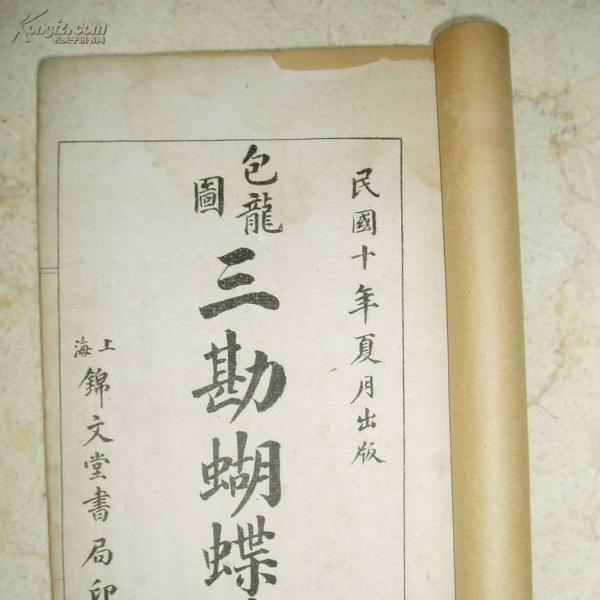 民國十年夏月出版
包龍圖
三勘蝴蝶
上海
錦文堂書局印
Kongfz.com
孔夫子旧书网